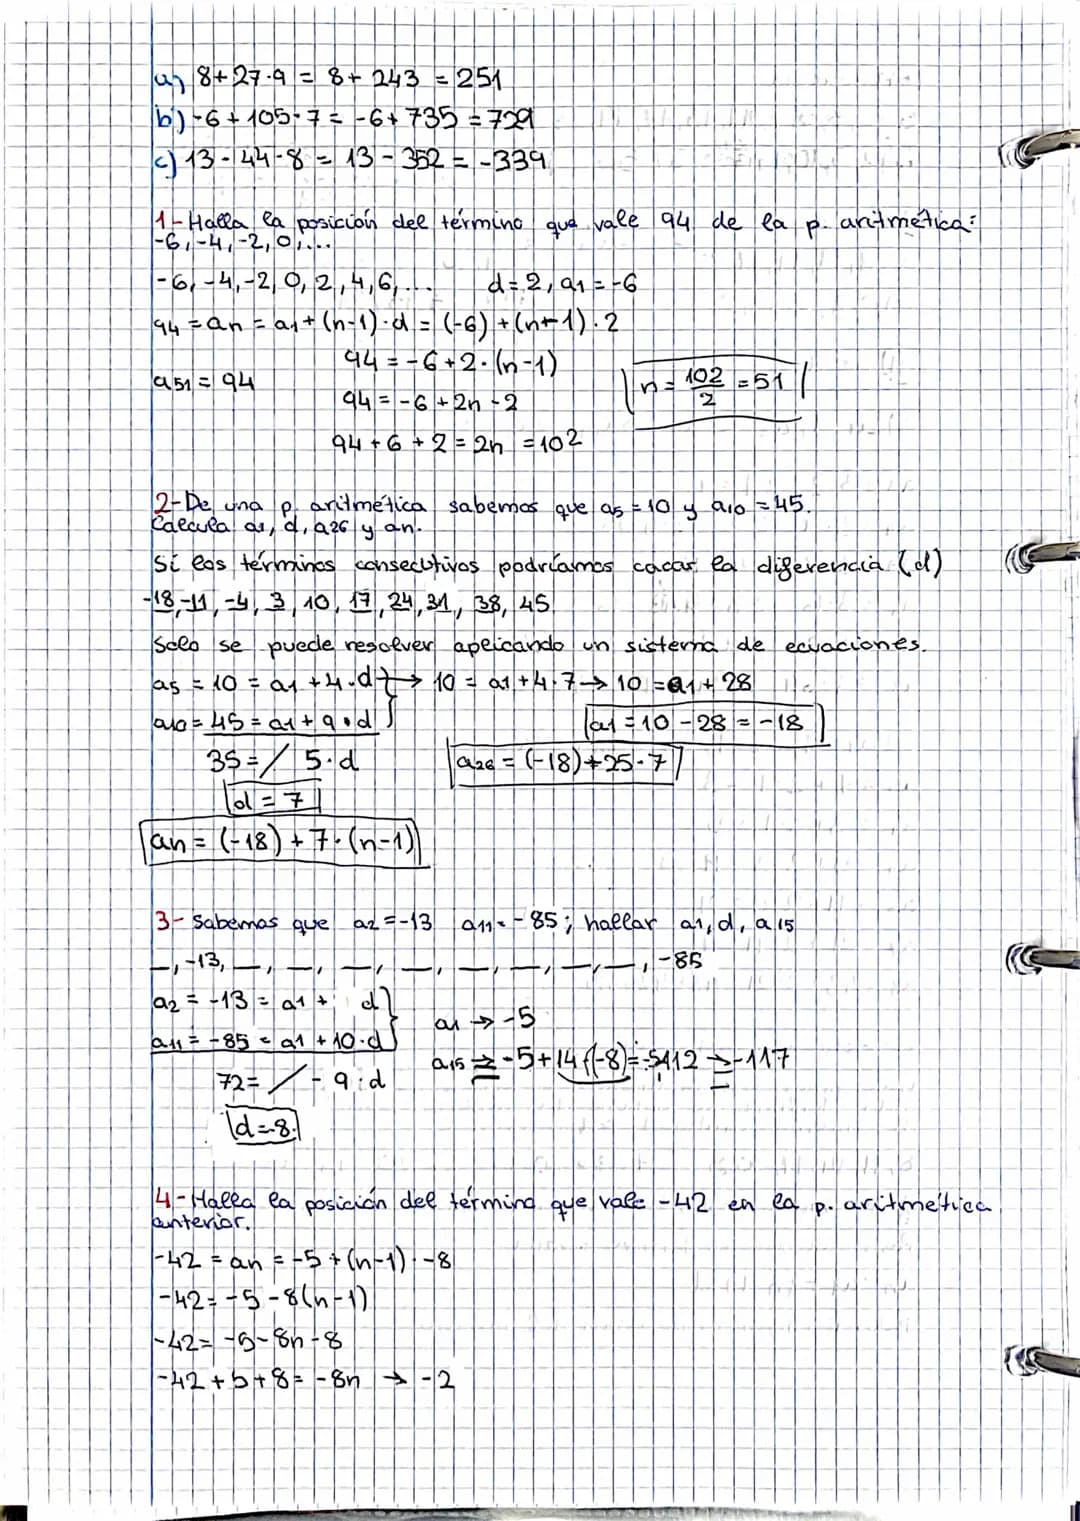 a) 8+27·9 = 8+ 243 = 251
b) -6+105·7 = -6+735 = 729
c) 13-44·8 = 13-352 = -339
1-Halla la posición del término que vale 94 de la p. aritmética:
-6,-4,-2,0,...
-6,-4,-2,0,2,4,6,... d=2, a1=-6
94=an=a1+(n-1)·d=(-6)+(n-1)·2
94=-6+2·(n-1)
a51=94
n=102/2=51
94=-6+2n-2
94+6+2=2n =102
2-De una p. aritmética sabemos que a5=10 y a10=45.
Calcula a1, d, a26 y an.
Si los términos consecutivos podríamos cacar la diferencia (d)
-18,-11,-4,3,10,17,24,31,38,45
Solo se puede resolver aplicando un sistema de ecuaciones.
a5=10=a1+4·d } → 10=a1+4·7 → 10=a1+28
a10=45=a1+9·d a1=10-28=-18
35= / 5·d a26=(-18)+25·7
d=7
an=(-18)+7·(n-1)
3-Sabemos que a2=-13 a11=-85; hallar a1, d, a15
_,-13,_,_,_,_,_,_,_,_,-85
a2=-13=a1+ d }
a1 → -5
a11=-85=a1+10·d
a15 → -5+14·(-8)=-5-112 → -117
72= / -9·d
d=-8
4-Halla la posición del término que vale -42 en la p. aritmética
anterior.
-42=an=-5+(n-1)·-8
-42=-5-8(n-1)
-42=-5-8n-8
-42+5+8=-8n → -2